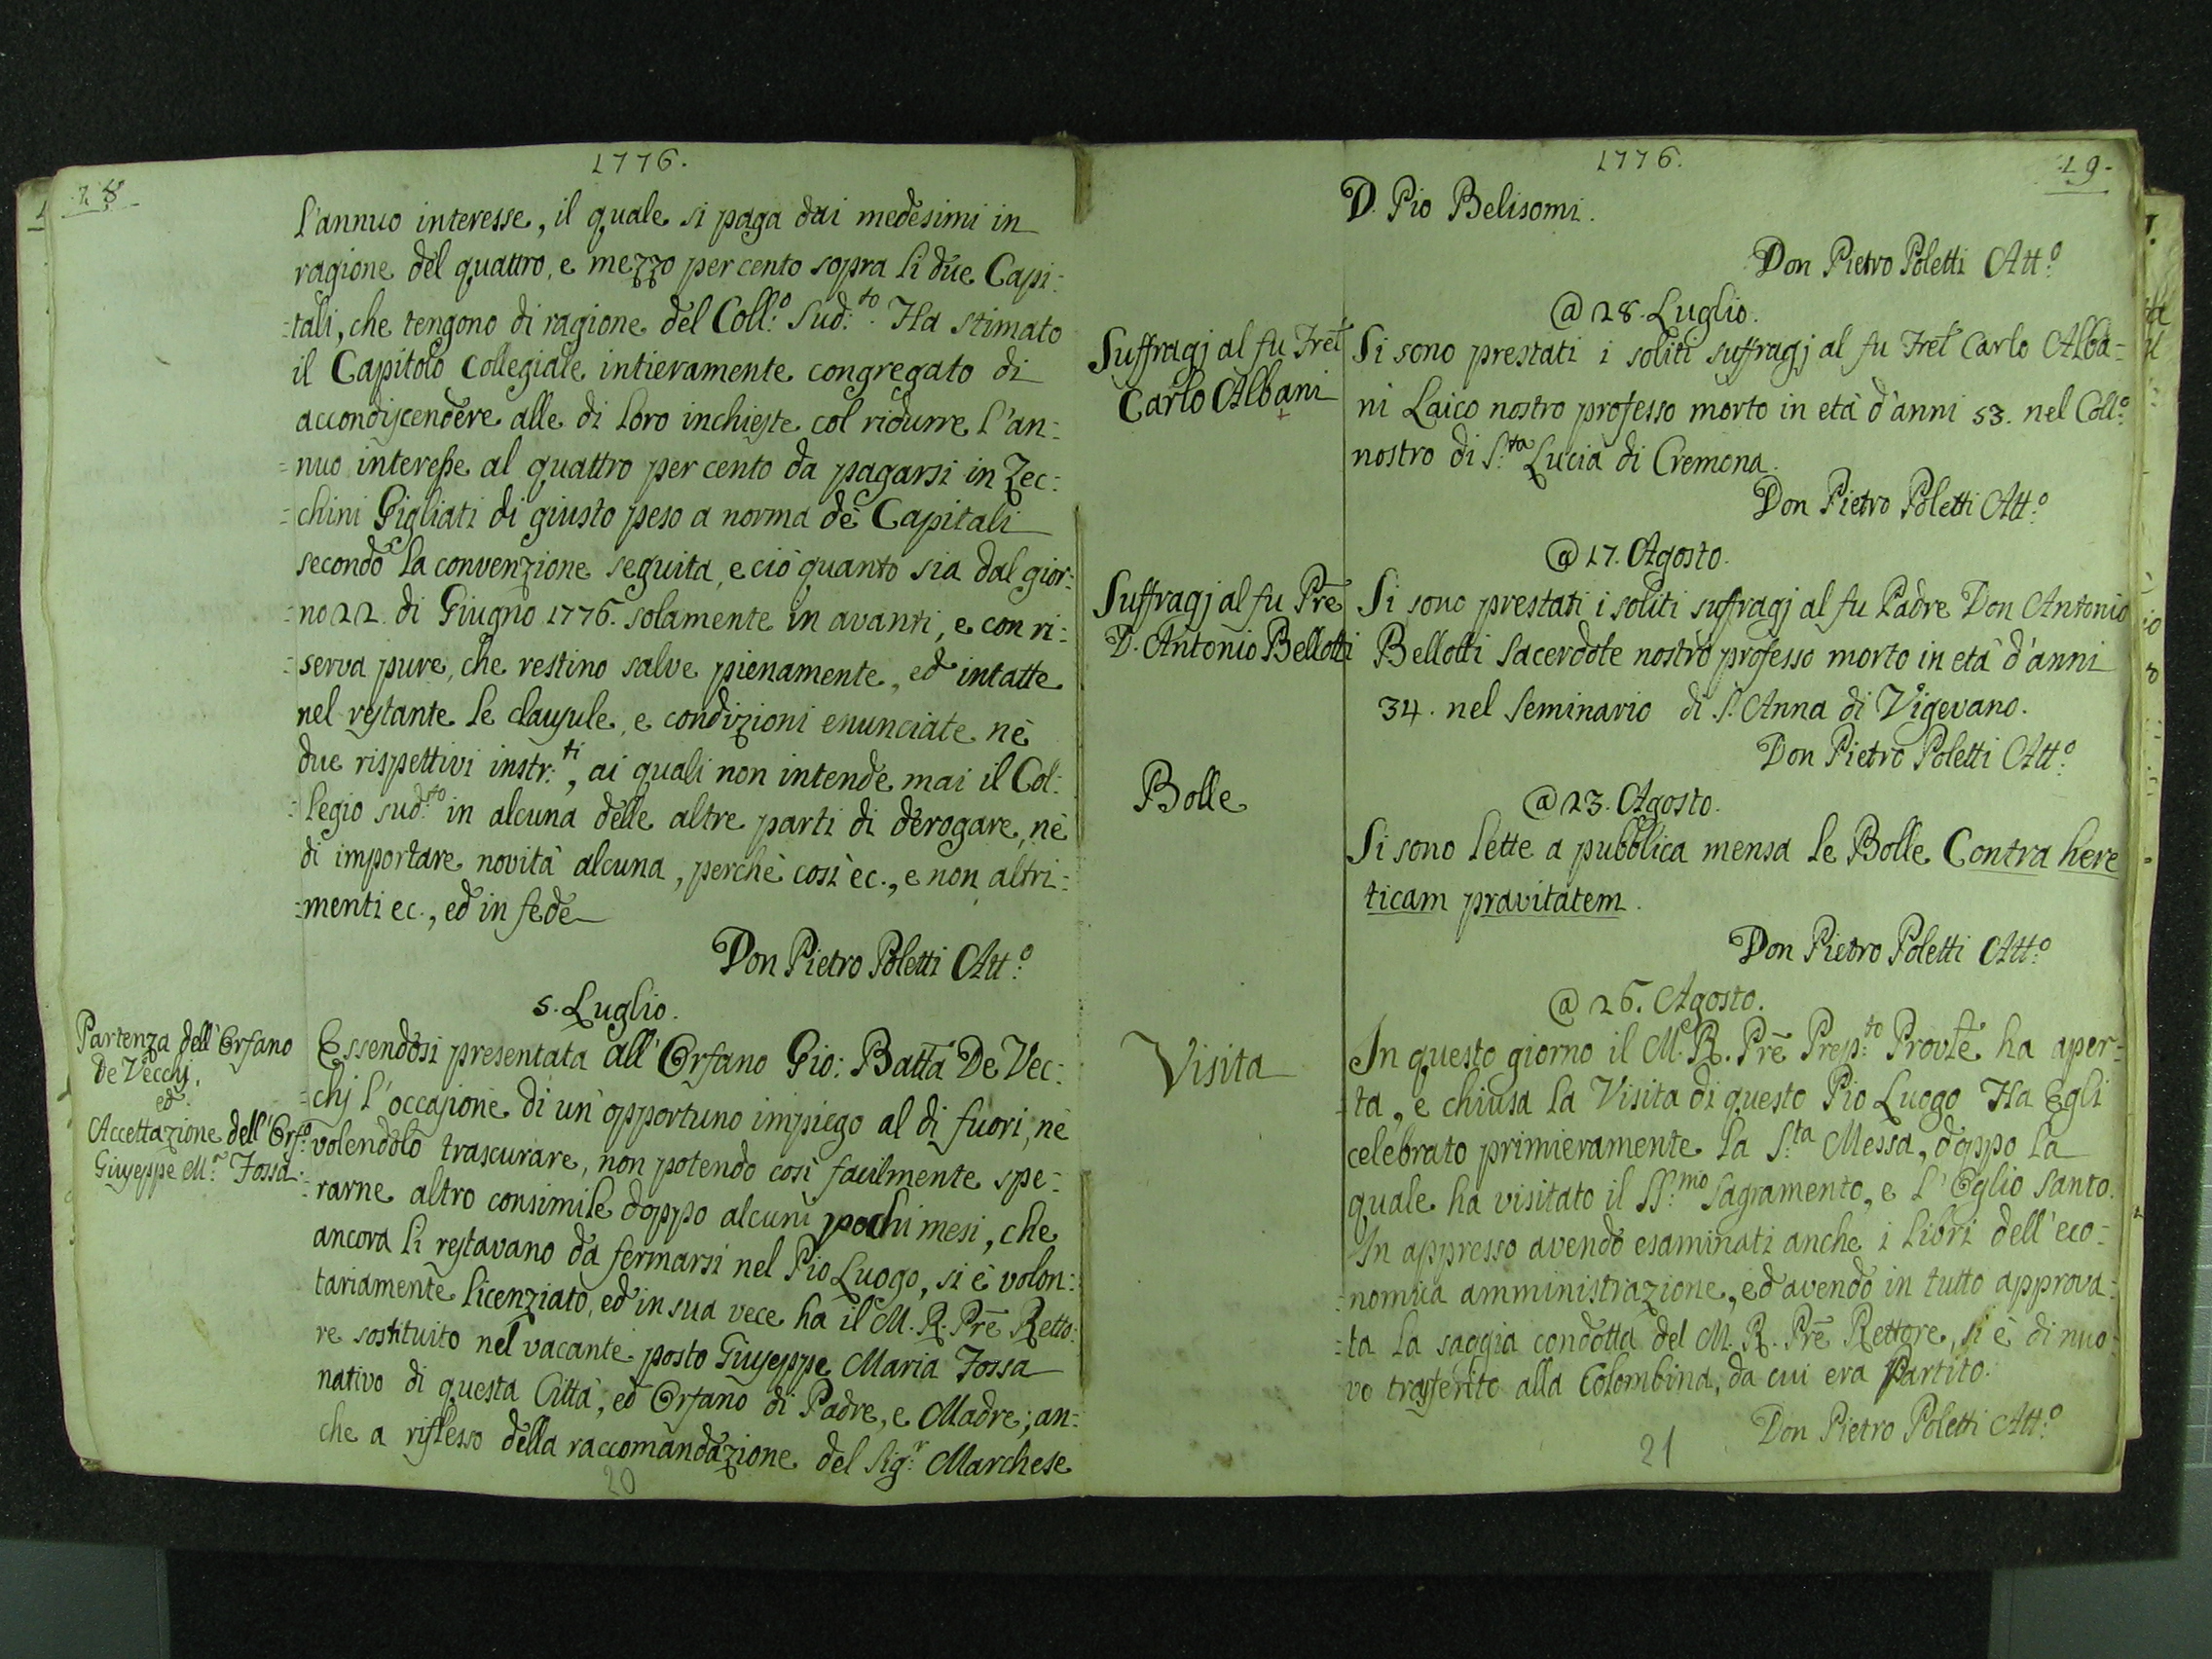 18
1776.
l'annuo interesse, il quale si paga dai medesimi in
ragione del quattro, e mezzo per cento sopra li due Capi:
:tali, che tengono di ragione del Coll:o Sud:to. Ha stimato
il Capitolo Collegiale intieramente congregato di
accondiscendere alle di loro inchieste col ridurre l'an:
:nuo interesse al quattro per cento da pagarsi in Zec:
:chini Gigliati di giusto peso a norma de' Capitali
secondo la convenzione seguita, e ciò quanto sia dal gior:
:no 22. di Giugno 1776. solamente in avanti, e con ri:
:serva pure, che restino salve pienamente, ed intatte
nel restante le clausule, e condizioni enunciate ne'
due rispettivi instr:ti, ai quali non intende mai il Col:
:legio sud:to in alcuna delle altre parti di derogare, nè
di importare novità alcuna, perchè così ec., e non altri:
:menti ec., ed in fede
Don Pietro Poletti Att:o
5. Luglio.
Partenza dell'Orfano
De Vecchj,
ed
Accettazione dell'Orf:o
Giuseppe M:a Fossa
Essendosi presentata all'Orfano Gio: Batta De Vec:
:chj l'occasione di un'opportuno impiego al di fuori, nè
volendolo trascurare, non potendo così facilmente spe:
:rarne altro consimile doppo alcuni pochi mesi, che
ancora li restavano da fermarsi nel Pio Luogo, si è volon:
tariamente licenziato, ed in sua vece ha il M. R. Prē Retto:
re sostituito nel vacante posto Giuseppe Maria Fossa
nativo di questa Città, ed Orfano di Padre, e Madre; an:
che a riflesso della raccomandazione del Sig:r Marchese
20
1776.
19.
D. Pio Belisomi.
Don Pietro Poletti Att:o
@ 28. Luglio.
Suffragj al fu Frēt
Carlo Albani
Si sono prestati i soliti suffragj al fu Frēt Carlo Alba:
ni Laico nostro professo morto in età d'anni 53. nel Coll:o
nostro di S:ta Lucia di Cremona.
Don Pietro Poletti Att:o
@ 17. Agosto.
Suffragj al fu Prē
D. Antonio Bellotti
Si sono prestati i soliti suffragj al fu Padre Don Antonio
Bellotti Sacerdote nostro professo morto in età d'anni
34. nel Seminario di S. Anna di Vigevano.
Don Pietro Poletti Att:o
Bolle
@ 23. Agosto.
Si sono lette a pubblica mensa le Bolle Contra here
ticam pravitatem.
Don Pietro Poletti Att:o
@ 26. Agosto.
Visita
In questo giorno il M. R. Prē Prep:to Provle ha aper:
:ta, e chiusa la Visita di questo Pio Luogo Ha Egli
celebrato primieramente la S:ta Messa, doppo la
quale ha visitato il SS:mo Sagramento, e l'Oglio Santo.
In appresso avendo esaminati anche i libri dell'eco:
:nomica amministrazione, ed avendo in tutto approva:
:ta la saggia condotta del M. R. Prē Rettore, si è di nuo:
vo trasferito alla Colombina, da cui era partito.
Don Pietro Poletti Att:o
21